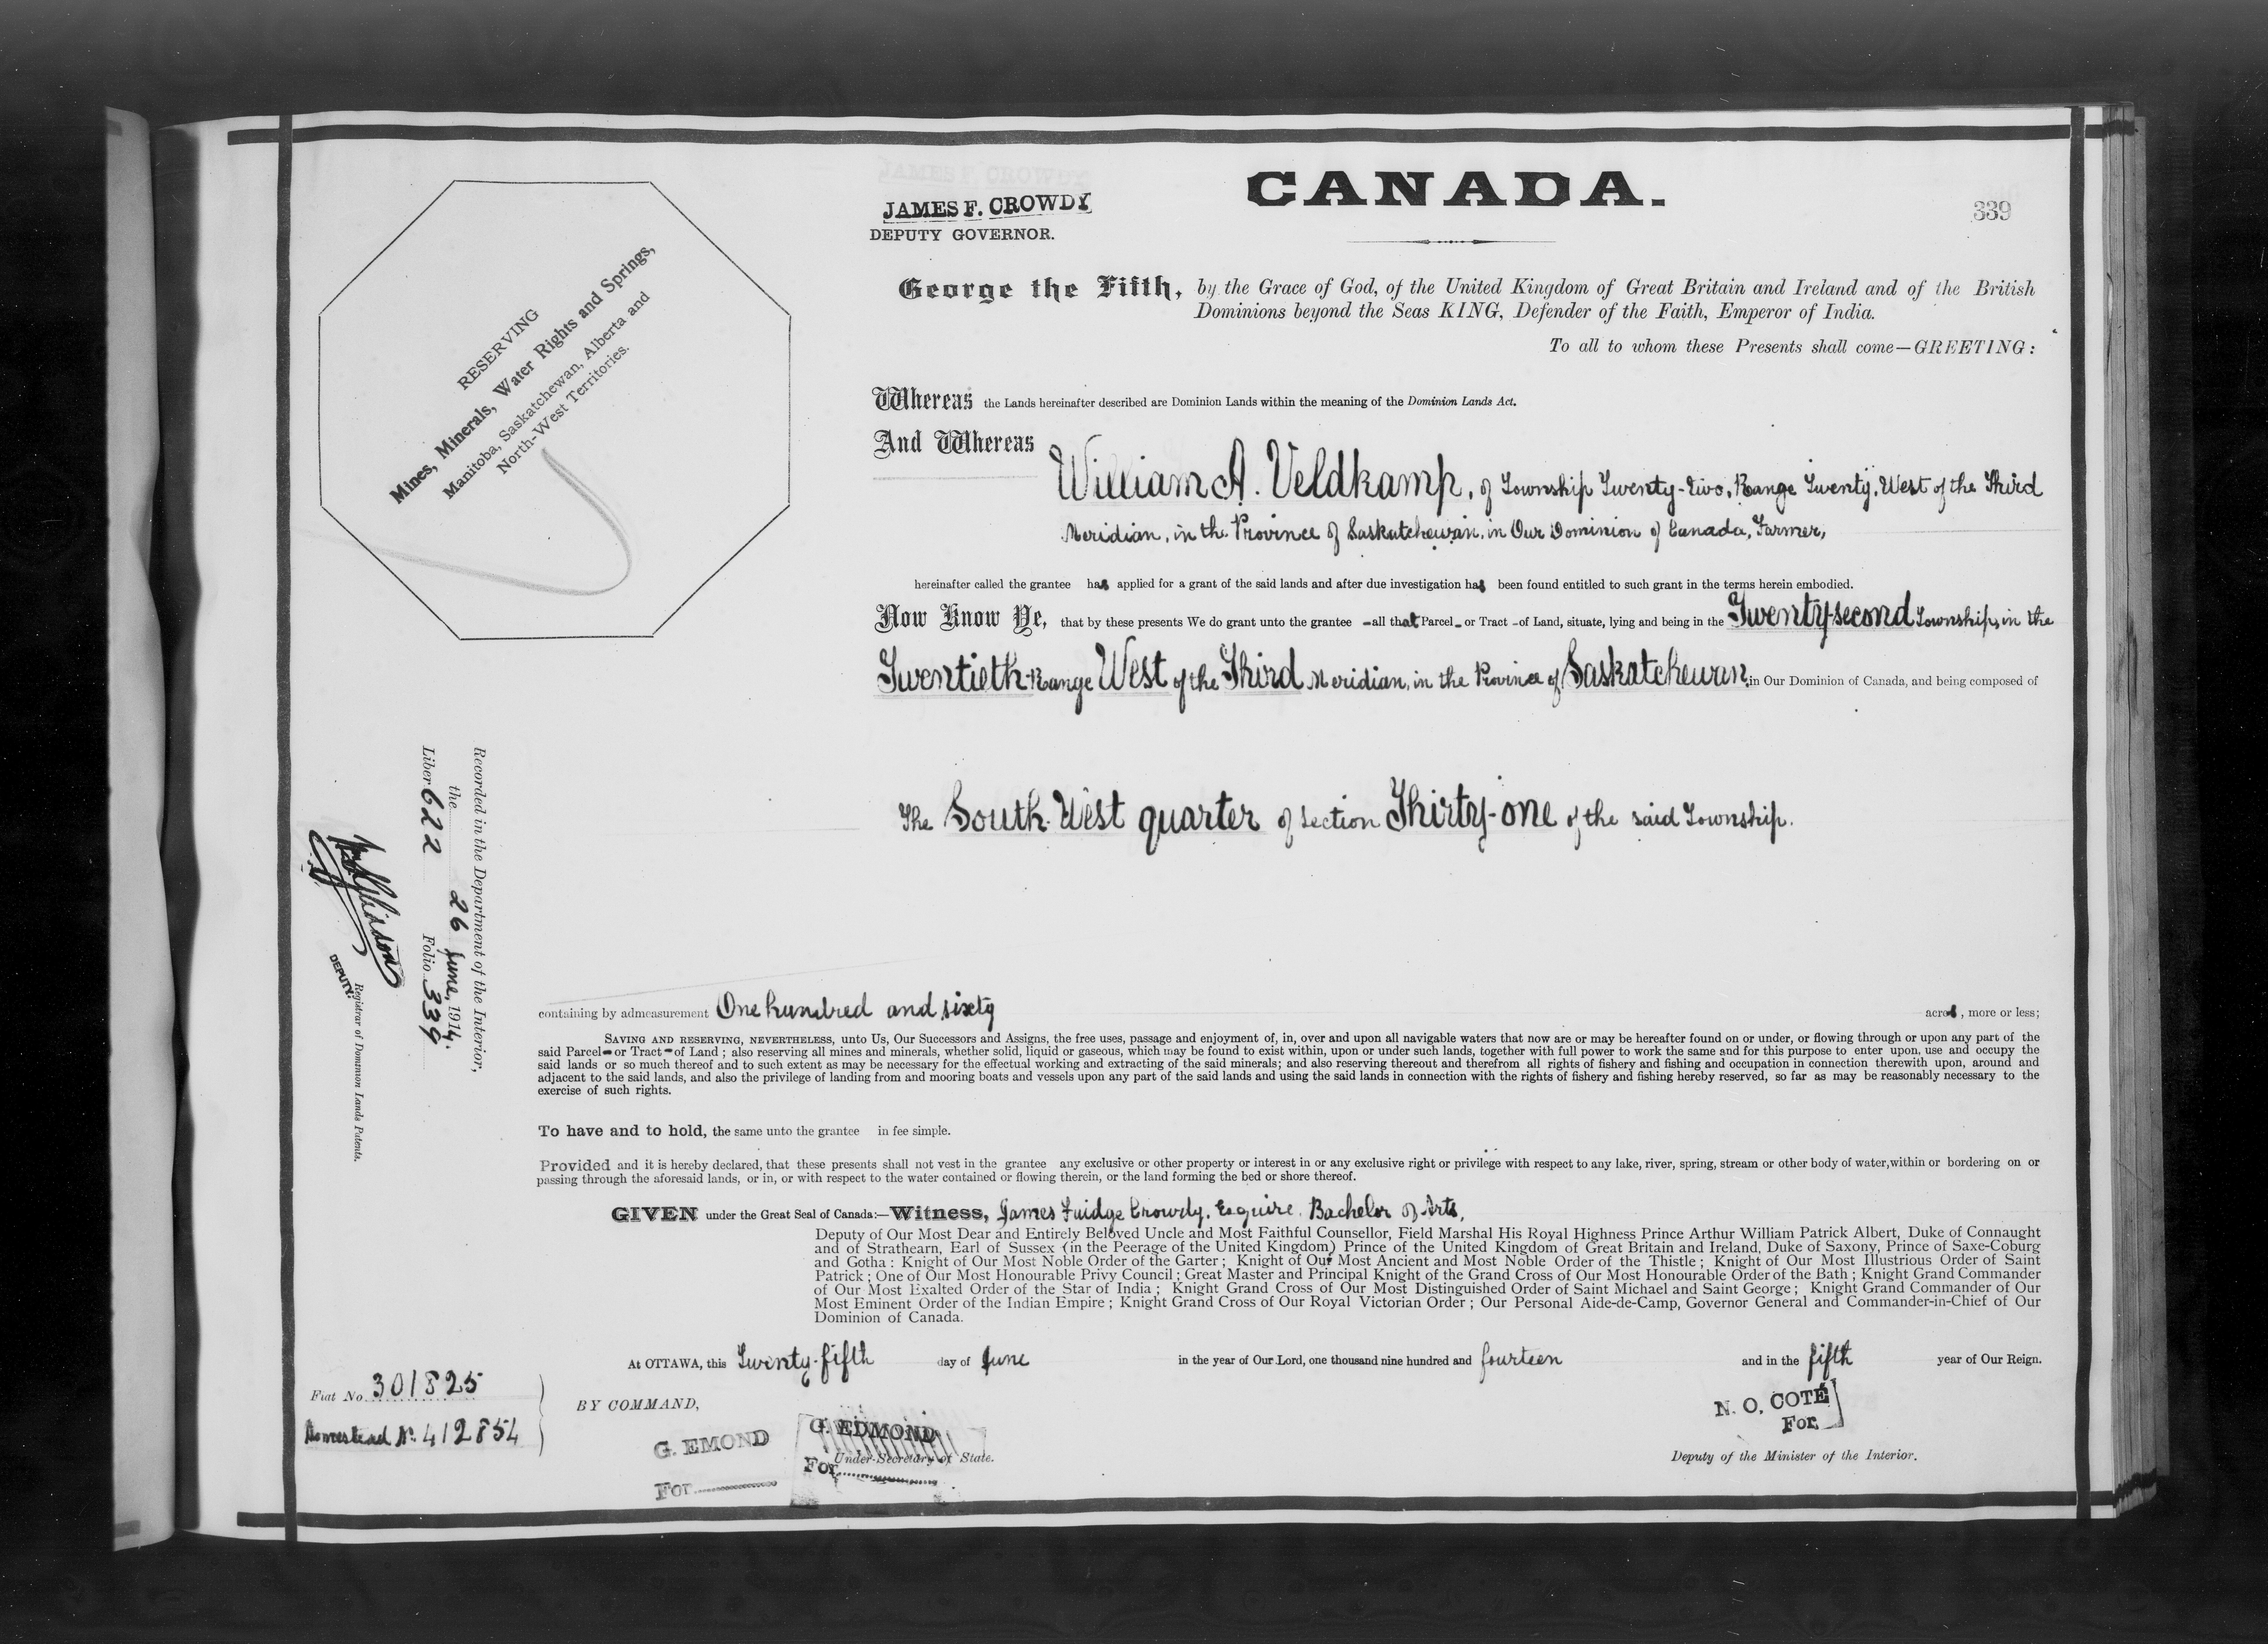 CANADA.
JAMES F. CROWDY
DEPUTY GOVERNOR.
339
RESERVING
Mines, Minerals, Water Rights and Springs,
Manitoba, Saskatchewan, Alberta and
North-West Territories.
George the Fifth, by the Grace of God, of the United Kingdom of Great Britain and Ireland and of the British
Dominions beyond the Seas KING, Defender of the Faith, Emperor of India.
To all to whom these Presents shall come—GREETING:
Whereas the Lands hereinafter described are Dominion Lands within the meaning of the Dominion Lands Act.
And Whereas
William A. Veldkamp, of Township Twenty-two, Range Twenty, West of the Third
Meridian, in the Province of Saskatchewan, in Our Dominion of Canada, Farmer,
hereinafter called the grantee has applied for a grant of the said lands and after due investigation has been found entitled to such grant in the terms herein embodied.
Now Know Ye, that by these presents We do grant unto the grantee —all that Parcel - or Tract - of Land, situate, lying and being in the Twenty-second Township, in the
Twentieth Range West of the Third Meridian, in the Province of Saskatchewan, in Our Dominion of Canada, and being composed of
The South West quarter of section Thirty-one of the said Township.
Recorded in the Department of the Interior,
the 26 June, 1914,
Liber 622 Folio 339
DEPUTY
Registrar of Dominion Lands Patents.
containing by admeasurement One hundred and sixty acres, more or less;
SAVING AND RESERVING, NEVERTHELESS, unto Us, Our Successors and Assigns, the free uses, passage and enjoyment of, in, over and upon all navigable waters that now are or may be hereafter found on or under, or flowing through or upon any part of the
said Parcel - or Tract - of Land; also reserving all mines and minerals, whether solid, liquid or gaseous, which may be found to exist within, upon or under such lands, together with full power to work the same and for this purpose to enter upon, use and occupy the
said lands or so much thereof and to such extent as may be necessary for the effectual working and extracting of the said minerals; and also reserving thereout and therefrom all rights of fishery and fishing and occupation in connection therewith upon, around and
adjacent to the said lands, and also the privilege of landing from and mooring boats and vessels upon any part of the said lands and using the said lands in connection with the rights of fishery and fishing hereby reserved, so far as may be reasonably necessary to the
exercise of such rights.
To have and to hold, the same unto the grantee in fee simple.
Provided and it is hereby declared, that these presents shall not vest in the grantee any exclusive or other property or interest in or any exclusive right or privilege with respect to any lake, river, spring, stream or other body of water, within or bordering on or
passing through the aforesaid lands, or in, or with respect to the water contained or flowing therein, or the land forming the bed or shore thereof.
GIVEN under the Great Seal of Canada:—Witness, James Fuidge Crowdy, Esquire, Bachelor of Arts,
Deputy of Our Most Dear and Entirely Beloved Uncle and Most Faithful Counsellor, Field Marshal His Royal Highness Prince Arthur William Patrick Albert, Duke of Connaught
and of Strathearn, Earl of Sussex (in the Peerage of the United Kingdom) Prince of the United Kingdom of Great Britain and Ireland, Duke of Saxony, Prince of Saxe-Coburg
and Gotha: Knight of Our Most Noble Order of the Garter; Knight of Our Most Ancient and Most Noble Order of the Thistle; Knight of Our Most Illustrious Order of Saint
Patrick; One of Our Most Honourable Privy Council; Great Master and Principal Knight of the Grand Cross of Our Most Honourable Order of the Bath; Knight Grand Commander
of Our Most Exalted Order of the Star of India; Knight Grand Cross of Our Most Distinguished Order of Saint Michael and Saint George; Knight Grand Commander of Our
Most Eminent Order of the Indian Empire; Knight Grand Cross of Our Royal Victorian Order; Our Personal Aide-de-Camp, Governor General and Commander-in-Chief of Our
Dominion of Canada.
At OTTAWA, this Twenty-fifth day of June in the year of Our Lord, one thousand nine hundred and fourteen and in the fifth year of Our Reign.
Fiat No. 301825
Homestead No. 412854
BY COMMAND,
G. EMOND
For
G. EDMOND
For
Under-Secretary of State.
N. O. COTÉ
For
Deputy of the Minister of the Interior.